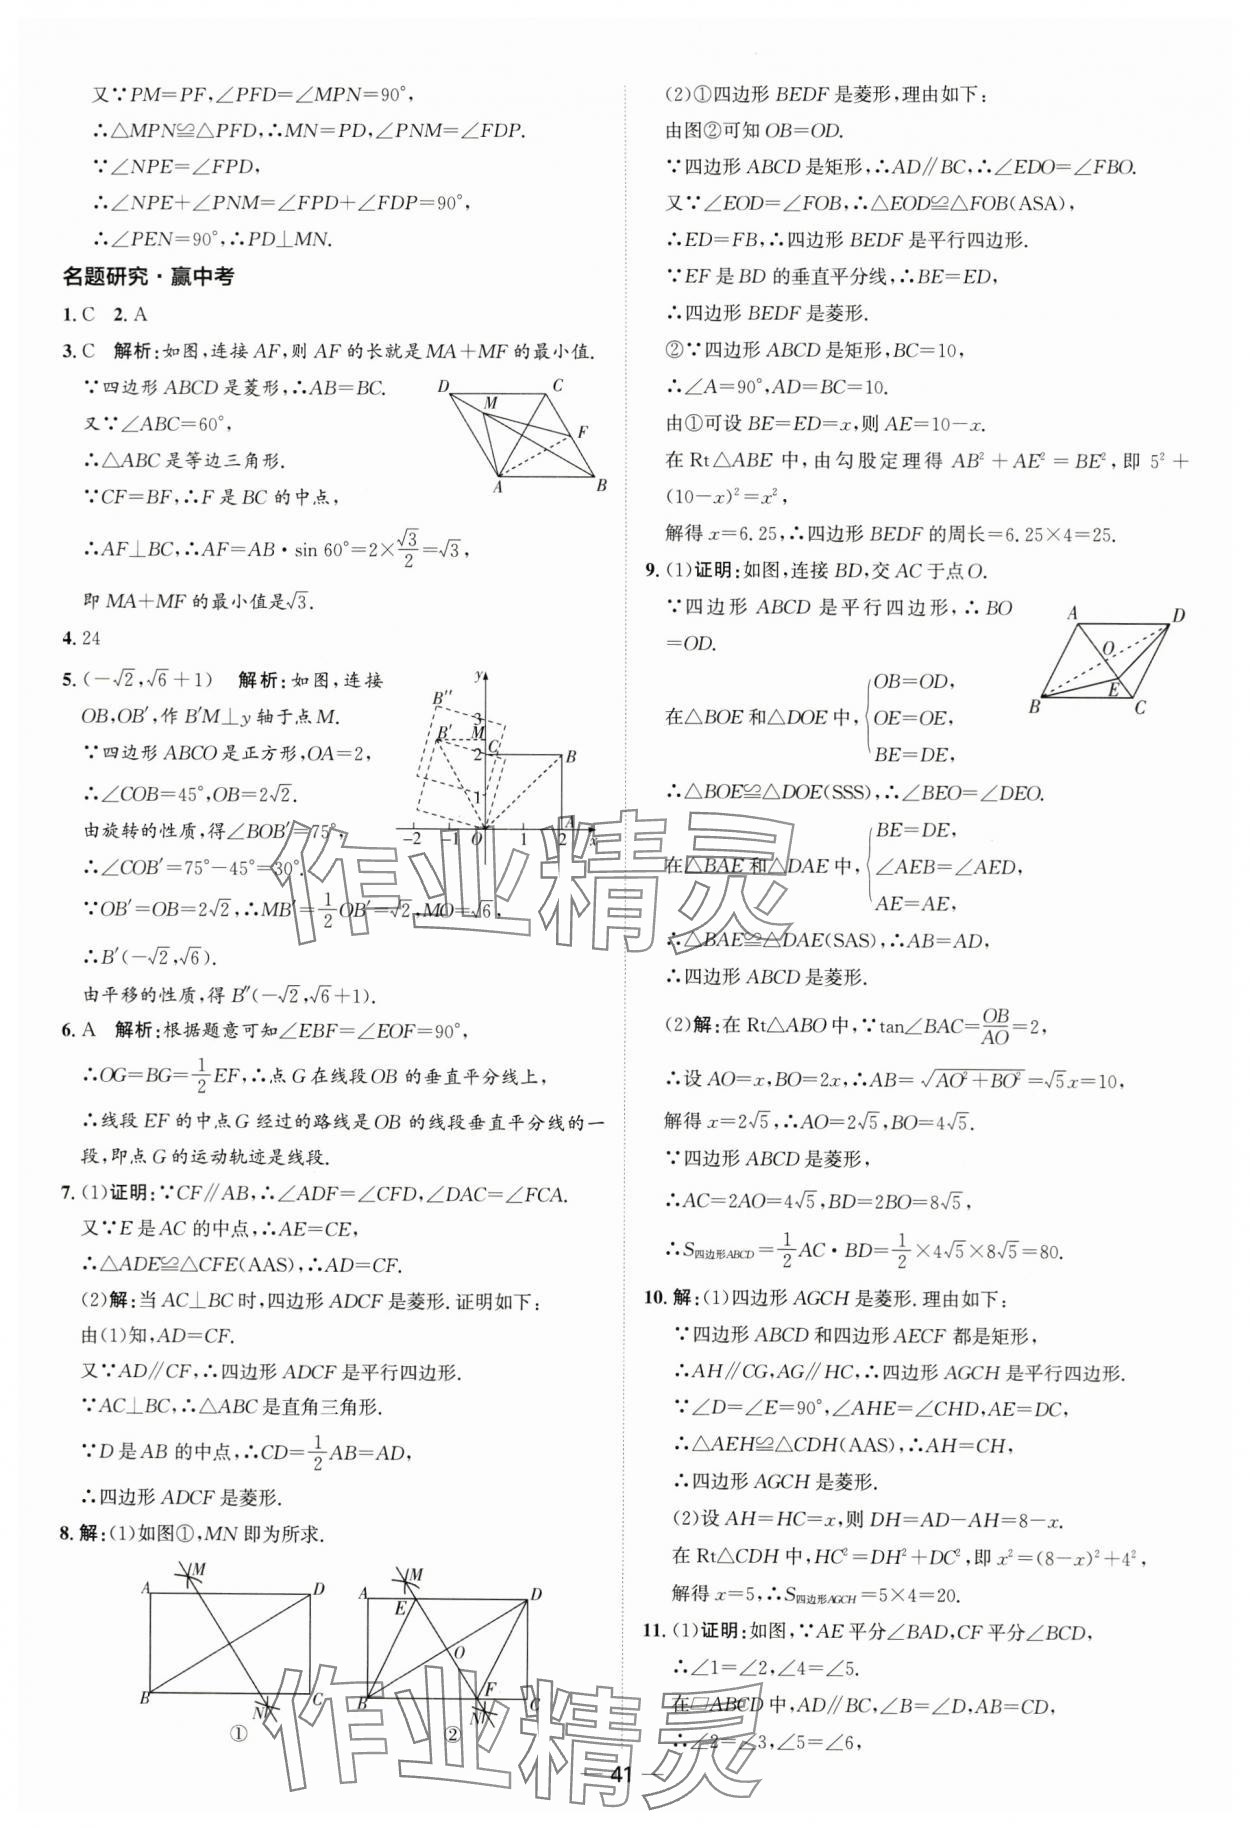 又∵PM=PF,∠PFD=∠MPN=90°,
∴△MPN≌△PFD,∴MN=PD,∠PNM=∠FDP.
∵∠NPE=∠FPD,
∴∠NPE+∠PNM=∠FPD+∠FDP=90°,
∴∠PEN=90°,∴PD⊥MN.
名题研究·赢中考
1. C 2. A
3. C 解析:如图,连接 AF,则 AF 的长就是 MA+MF 的最小值.
∵四边形 ABCD 是菱形,∴AB=BC.
又∵∠ABC=60°,
∴△ABC 是等边三角形.
∵CF=BF,∴F 是 BC 的中点,
∴AF⊥BC,∴AF=AB·sin 60°=2×√3/2=√3,
即 MA+MF 的最小值是√3.
D C M F A B
4. 24
5. (-√2,√6+1) 解析:如图,连接
OB,OB′,作 B′M⊥y 轴于点 M.
∵四边形 ABCO 是正方形,OA=2,
∴∠COB=45°,OB=2√2.
由旋转的性质,得∠BOB′=75°,
∴∠COB′=75°-45°=30°.
∵OB′=OB=2√2,∴MB′=1/2OB′=√2,MO=√6,
∴B′(-√2,√6).
由平移的性质,得 B″(-√2,√6+1).
y B″ 3 B′ M C 2 B 1 A -2 -1 O 1 2 x
6. A 解析:根据题意可知∠EBF=∠EOF=90°,
∴OG=BG=1/2EF,∴点 G 在线段 OB 的垂直平分线上,
∴线段 EF 的中点 G 经过的路线是 OB 的线段垂直平分线的一
段,即点 G 的运动轨迹是线段.
7. (1)证明:∵CF∥AB,∴∠ADF=∠CFD,∠DAC=∠FCA.
又∵E 是 AC 的中点,∴AE=CE,
∴△ADE≌△CFE(AAS),∴AD=CF.
(2)解:当 AC⊥BC 时,四边形 ADCF 是菱形.证明如下:
由(1)知,AD=CF.
又∵AD∥CF,∴四边形 ADCF 是平行四边形.
∵AC⊥BC,∴△ABC 是直角三角形.
∵D 是 AB 的中点,∴CD=1/2AB=AD,
∴四边形 ADCF 是菱形.
8. 解:(1)如图①,MN 即为所求.
A M D B N C ①
A E M D O B F N C ②
(2)①四边形 BEDF 是菱形,理由如下:
由图②可知 OB=OD.
∵四边形 ABCD 是矩形,∴AD∥BC,∴∠EDO=∠FBO.
又∵∠EOD=∠FOB,∴△EOD≌△FOB(ASA),
∴ED=FB,∴四边形 BEDF 是平行四边形.
∵EF 是 BD 的垂直平分线,∴BE=ED,
∴四边形 BEDF 是菱形.
②∵四边形 ABCD 是矩形,BC=10,
∴∠A=90°,AD=BC=10.
由①可设 BE=ED=x,则 AE=10-x.
在 Rt△ABE 中,由勾股定理得 AB²+AE²=BE²,即 5²+
(10-x)²=x²,
解得 x=6.25,∴四边形 BEDF 的周长=6.25×4=25.
9. (1)证明:如图,连接 BD,交 AC 于点 O.
∵四边形 ABCD 是平行四边形,∴BO
=OD.
A D O E B C
在△BOE 和△DOE 中,{OB=OD,
OE=OE,
BE=DE,
∴△BOE≌△DOE(SSS),∴∠BEO=∠DEO.
在△BAE 和△DAE 中,{BE=DE,
∠AEB=∠AED,
AE=AE,
∴△BAE≌△DAE(SAS),∴AB=AD,
∴四边形 ABCD 是菱形.
(2)解:在 Rt△ABO 中,∵tan∠BAC=OB/AO=2,
∴设 AO=x,BO=2x,∴AB=√(AO²+BO²)=√5x=10,
解得 x=2√5,∴AO=2√5,BO=4√5.
∵四边形 ABCD 是菱形,
∴AC=2AO=4√5,BD=2BO=8√5,
∴S四边形ABCD=1/2AC·BD=1/2×4√5×8√5=80.
10. 解:(1)四边形 AGCH 是菱形.理由如下:
∵四边形 ABCD 和四边形 AECF 都是矩形,
∴AH∥CG,AG∥HC,∴四边形 AGCH 是平行四边形.
∵∠D=∠E=90°,∠AHE=∠CHD,AE=DC,
∴△AEH≌△CDH(AAS),∴AH=CH,
∴四边形 AGCH 是菱形.
(2)设 AH=HC=x,则 DH=AD-AH=8-x.
在 Rt△CDH 中,HC²=DH²+DC²,即 x²=(8-x)²+4²,
解得 x=5,∴S四边形AGCH=5×4=20.
11. (1)证明:如图,∵AE 平分∠BAD,CF 平分∠BCD,
∴∠1=∠2,∠4=∠5.
在▱ABCD 中,AD∥BC,∠B=∠D,AB=CD,
∴∠2=∠3,∠5=∠6,
— 41 —
作业精灵
作业精灵